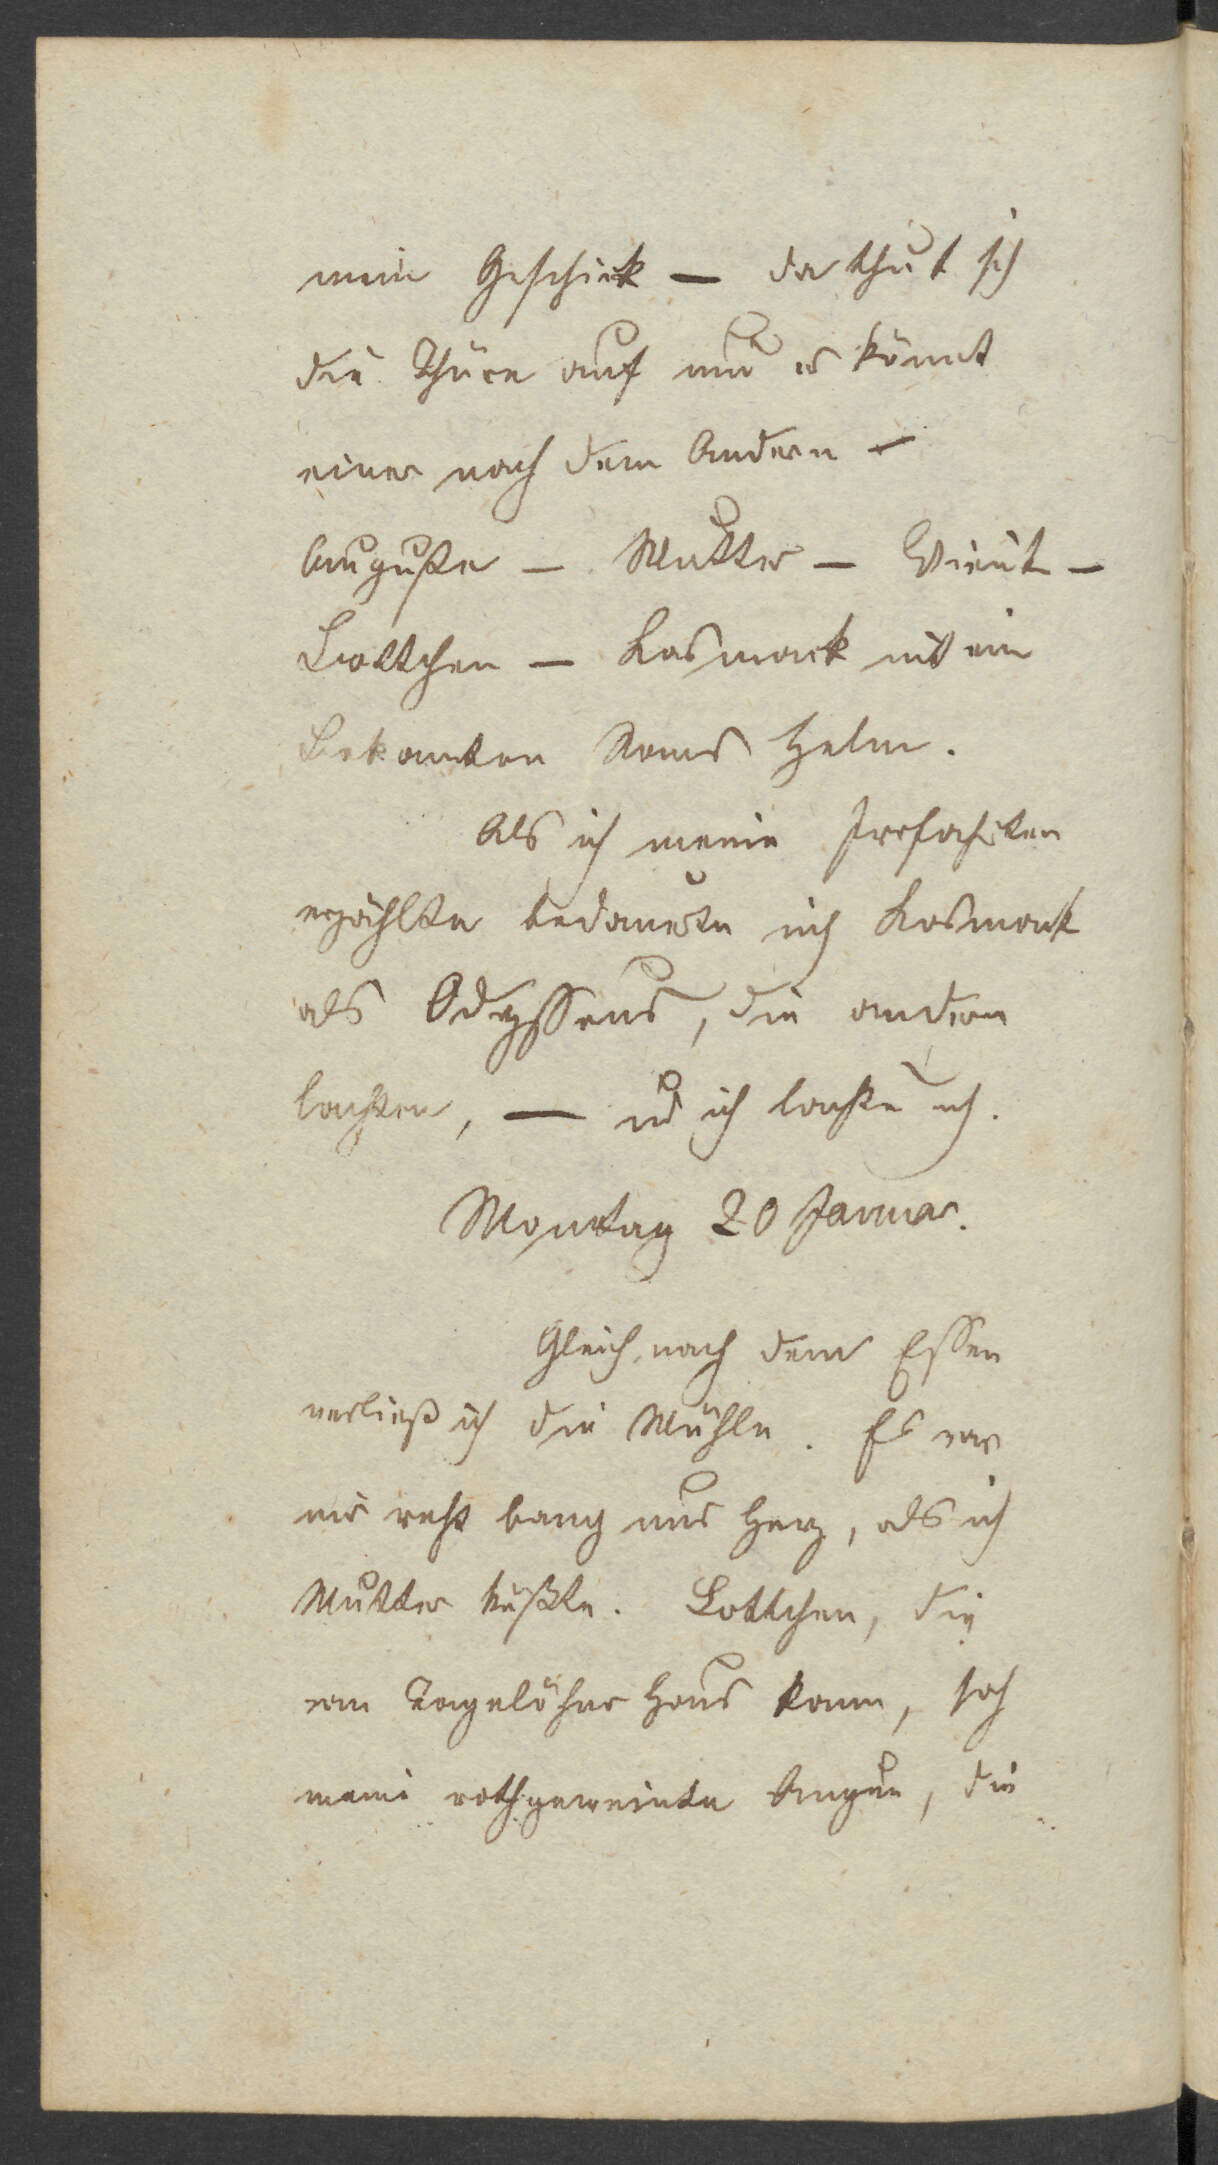 mein Geschick — da thut sich
die Thüre auf und es kömt
einer nach dem Andern –
Auguste – Mutter –
Lottchen – Kosmack mit ein
Bekanten Helm.
Als ich meine Irrfahrten
erzählte bedauerte mich Kosmack
als Odysseus, die andern
lachten, — und ich lachte
Montag 20 Januar.
Gleich nach dem Essen
verließ ich die Mühle. Es war
mir recht bang ums Herz, als ich
Mutter küßte. Lottchen, die
vom Tagelöhner Haus kam, sah
meine rothgeweinte Augen, die